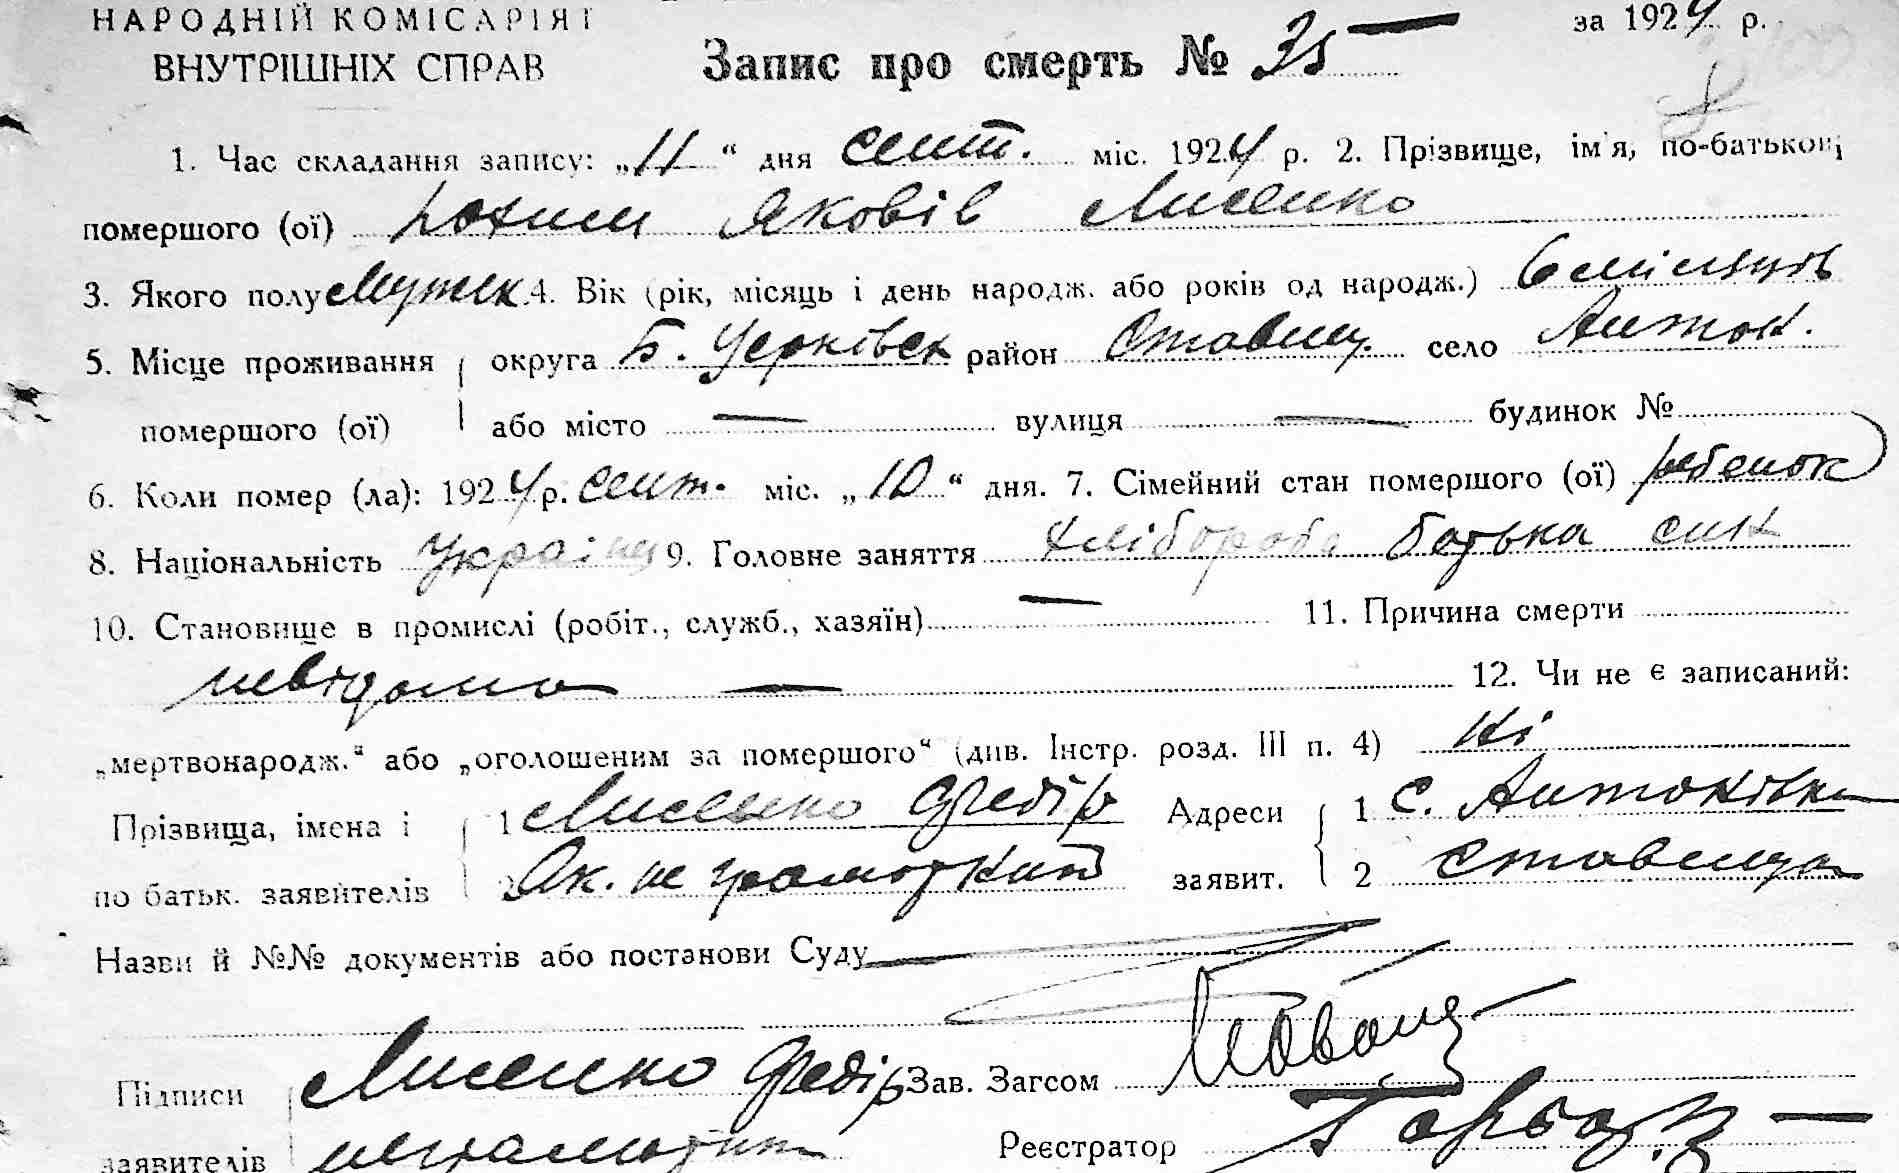 НАРОДНІЙ КОМІСАРІЯТ
ВНУТРІШНІХ СПРАВ
Запис про смерть № 35 —
за 1924 р.
1. Час складання запису: „11“ дня сент. міс. 1924 р. 2. Прізвище, ім'я, по-батькові
помершого (ої) Яковів Лисенко
3. Якого полу Мужеск. 4. Вік (рік, місяць і день народж. або років од народж.) 6 місяців
5. Місце проживання округа Б. Церковск район Ставищ. село Антон.
помершого (ої) або місто — вулиця — будинок №
6. Коли помер (ла): 1924 р. сент. міс. „10“ дня. 7. Сімейний стан помершого (ої) ребенок
8. Національність Українец 9. Головне заняття хлібороба батька син
10. Становище в промислі (робіт., служб., хазяїн) — 11. Причина смерти
невідома — 12. Чи не є записаний:
„мертвонародж.“ або „оголошеним за помершого“ (див. Інстр. розд. III п. 4) Ні
Прізвища, імена і 1 Лисенко Федір Адреси 1 с. Антонівка
по батьк. заявителів 2 Як. не грамотний заявит. 2 Ставища
Назви й №№ документів або постанови Суду —
Підписи Лисенко Федір Зав. Загсом
заявителів неграмотний Реєстратор